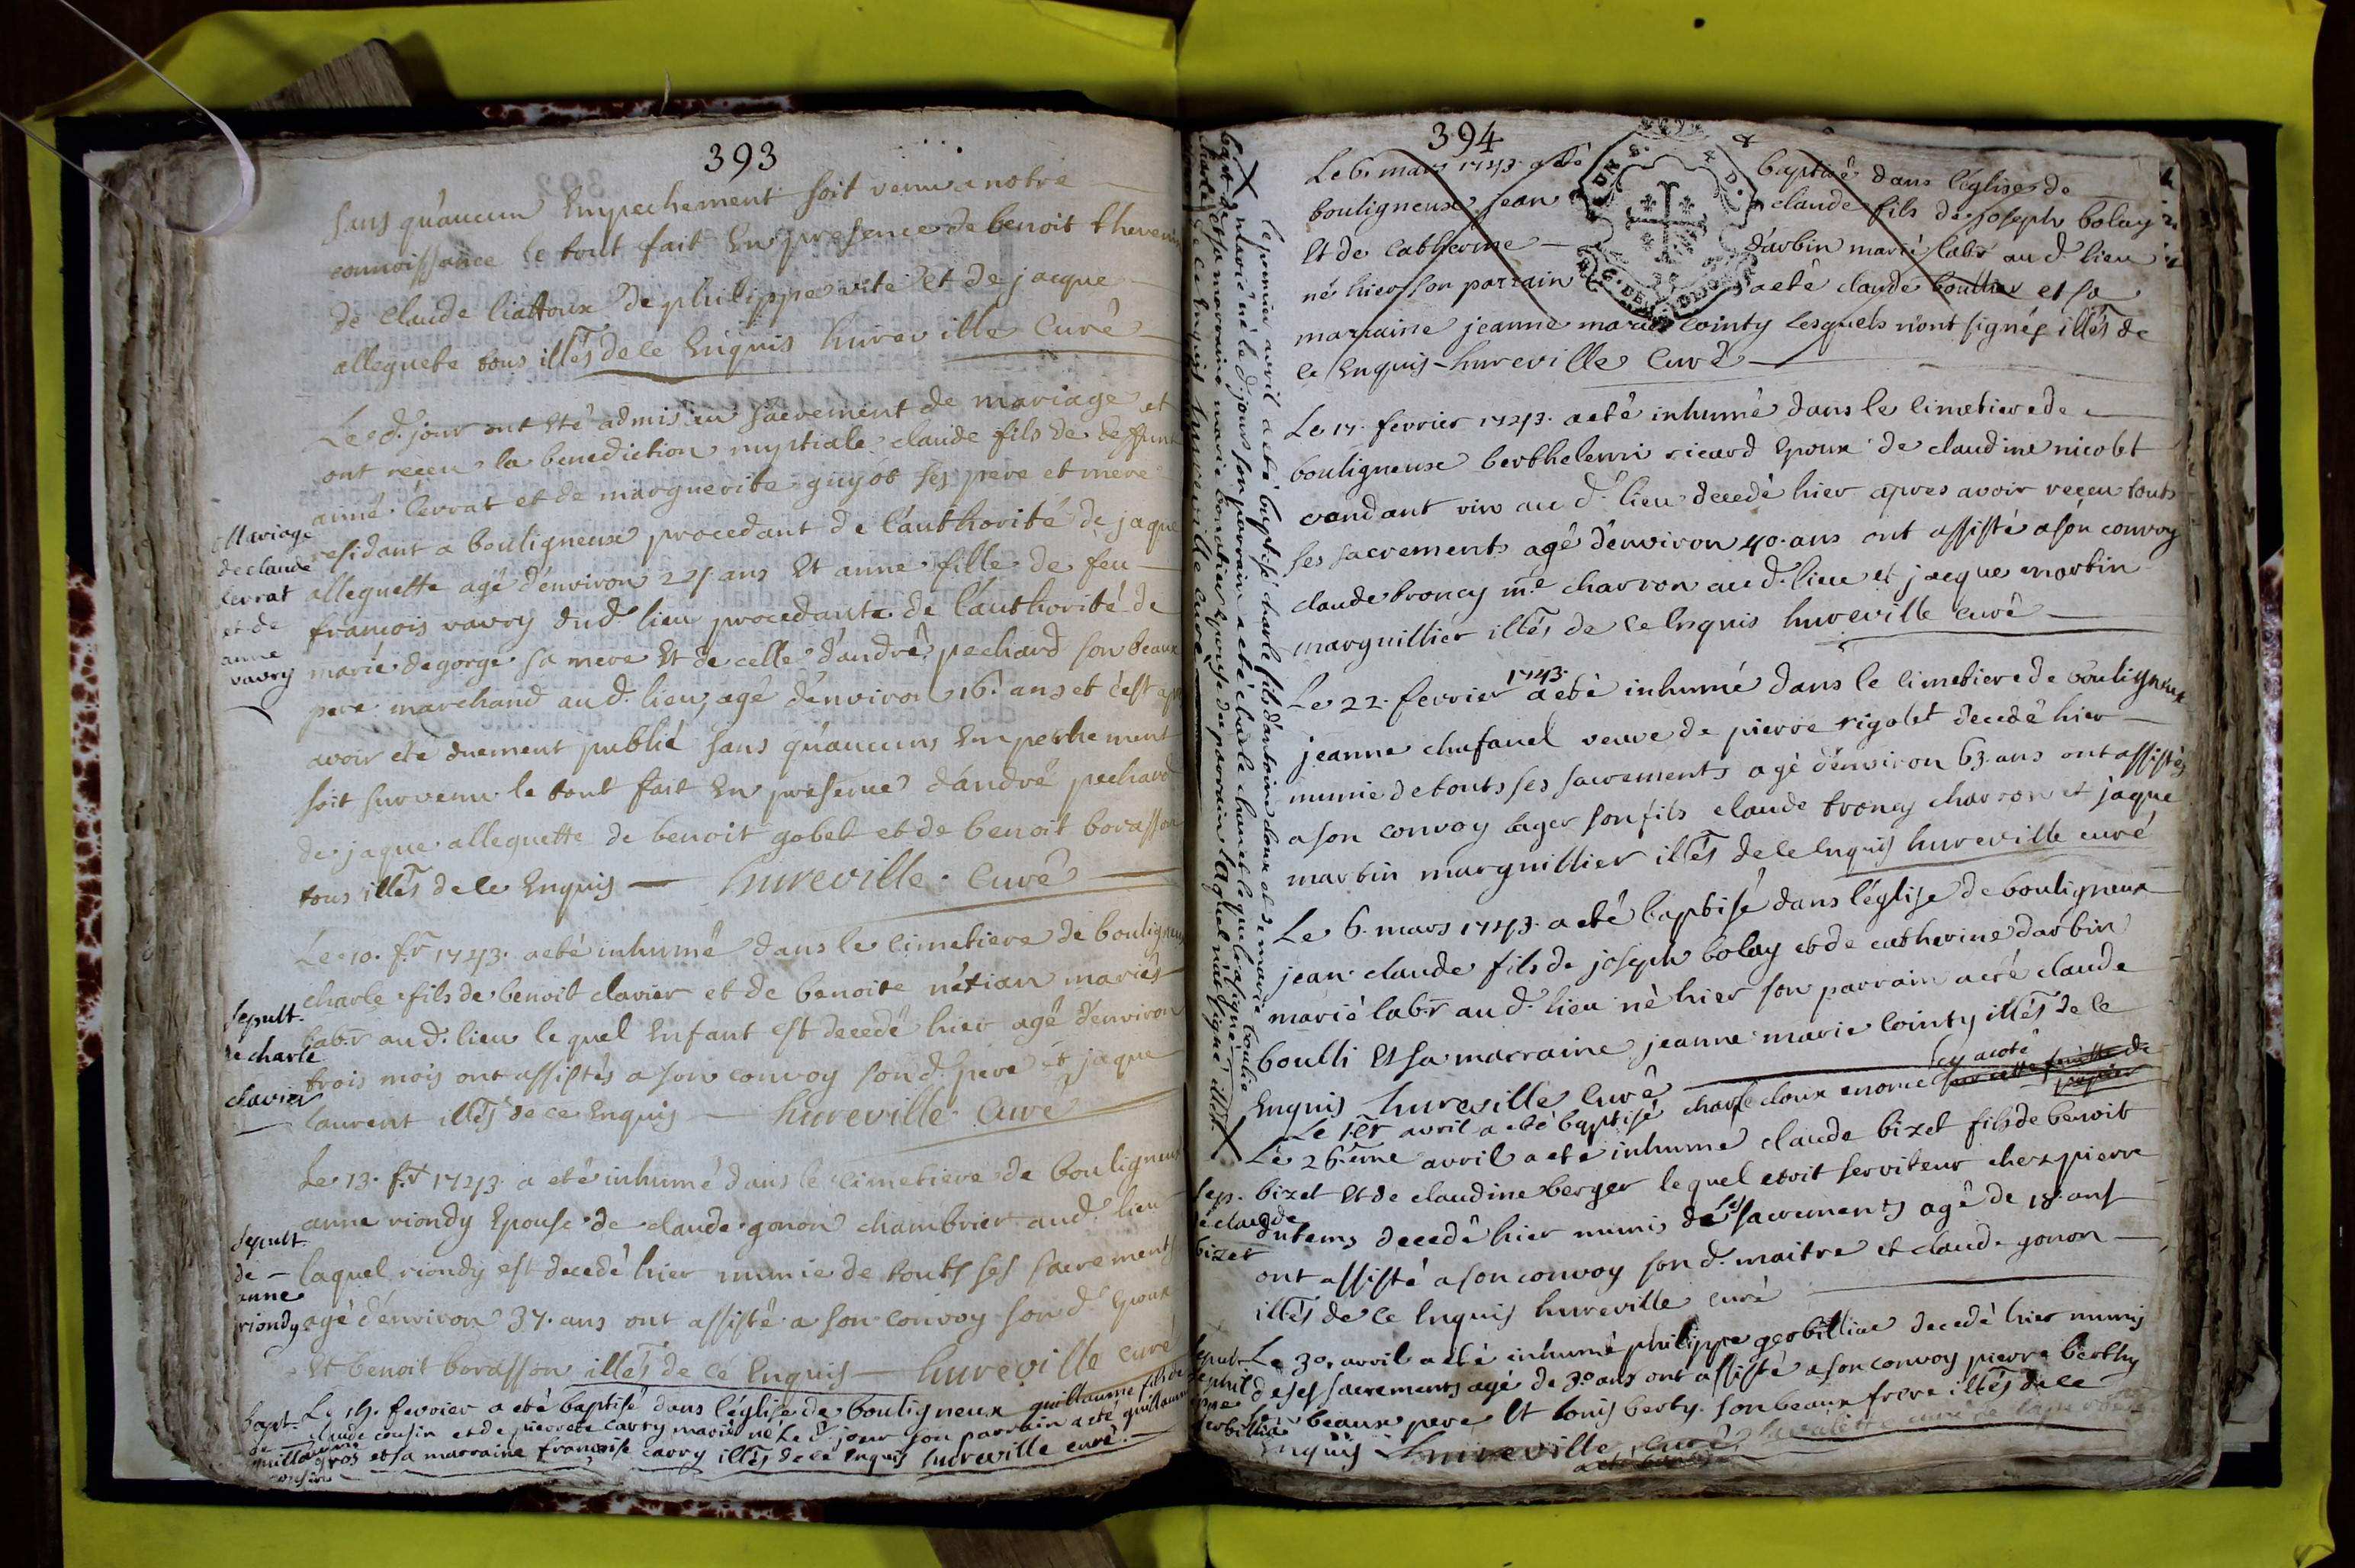 393
sans qu'aucun Empechement soit venu a notre
connoissance le tout fait En presence de benoit thevenin
de claude liattoux de philippe vite et de jacque
alleguete tous illtés de ce Enquis hureville Curé
Le d. jour ont été admis au sacrement de mariage et
ont reçeu la benediction nuptiale claude fils de deffunt
aimé lerrat et de marguerite guyot ses pere et mere
residant a bouligneux procedant de l'authorité de jaque
alleguette agé d'environ 24 ans Et anne fille de feu
francois vavry dud lieu procedante de l'authorité de
marie degorge sa mere Et de celle d'andré pechard son beaux
pere marchand aud. lieu, agé d'environ 16 ans et c'est apr
avoir été duement publié sans qu'aucuns Empechement
soit survenu le tout fait En presence d'andré pechard
de jaque alleguette de benoit gobet et de benoit borasson
tous illtés de ce Enquis hureville Curé
Mariage
de claude
lerrat
et de
anne
vavry
Le 10. fr 1743. a eté inhumé dans le cimetiere de bouligneux
charle fils de benoit clavier et de benoite nétian mariés
labr aud. lieu lequel Enfant est decedé hier agé d'environ
trois mois ont assistés a son convoy son d. pere et jaque
laurent illtés de ce Enquis hureville Curé
sepult.
de charle
clavier
Le 13. fr 1743 a eté inhumé dans le cimetiere de bouligneux
anne riondy Epouse de claude gonon chambrier aud. lieu
laquel riondy est decedé hier munie de touts ses sacrements
agé d'environ 37. ans ont assisté a son convoy son d. Epoux
Et benoit borasson illtés de ce Enquis hureville curé
sepult.
de
anne
riondy
Le 15. fevrier a eté baptisé dans l'église de bouligneux guillaume fils de
claude cousin et de pierrete carry mariés né le d. jour son parrain a été guillaume
gros et sa marraine francoise carry illtés de ce Enquis hureville curé.
bapt.
de
guillaume
cousin
394
Le 6. mars 1743. a eté baptisé dans l'églises de
bouligneux jean claude fils de joseph bolay
Et de catherine d'arbin marié labr au d. lieu
né hier son parrain a eté claude boullier et sa
marraine jeanne marie cointy lesquels n'ont signés illtés de
ce Enquis hureville Curé
Le 17. fevrier 1743. a eté inhumé dans le cimetiere de
bouligneux berthelemi ricard Epoux de claudine nicolet
vandant vin au d. lieu decedé hier apres avoir reçeu touts
ses sacrements agé d'environ 40. ans ont assisté a son convoy
claude troncy me charron aud. lieu et jacque martin
marguillier illtés de ce Enquis hureville curé
Le 22. fevrier 1743. a eté inhumé dans le cimetiere de bouligneux
jeanne chafanel veuve de pierre rigolet decedé hier
munie de touts ses sacrements agé d'environ 63. ans ont assistés
a son convoy leger son fils claude troncy charron et jaque
martin marguillier illtés de ce Enquis hureville curé
Le 6. mars 1743. a eté baptisé dans l'église de bouligneux
jean claude fils de joseph bolay et de catherine darbin
marié labr au d. lieu né hier son parrain a eté claude
boulli Et sa marraine jeanne marie cointy illtés de ce
Enquis hureville Curé
Le 1er avril a eté baptisé charle cloux enoncé cy acoté
Le 26eme avril a eté inhumé claude bizet fils de benoit
bizet Et de claudine berger lequel etoit serviteur chez pierre
dutems decedé hier munis de ses sacrements agé de 18. ans
ont assisté a son convoy son d. maitre et claude gonon
illtés de ce Enquis hureville curé
sep.
de claude
bizet
Le 30. avril a eté inhumé philippe gerbilliat decedé hier munis
de ses sacrements agé de 30 ans ont assisté a son convoy pierre berthy
beaux pere Et louis berty son beaux frere illtés de ce
Enquis hureville curé
le premier avril a eté baptisé charle fils d'antoine cloux et de marie boulie